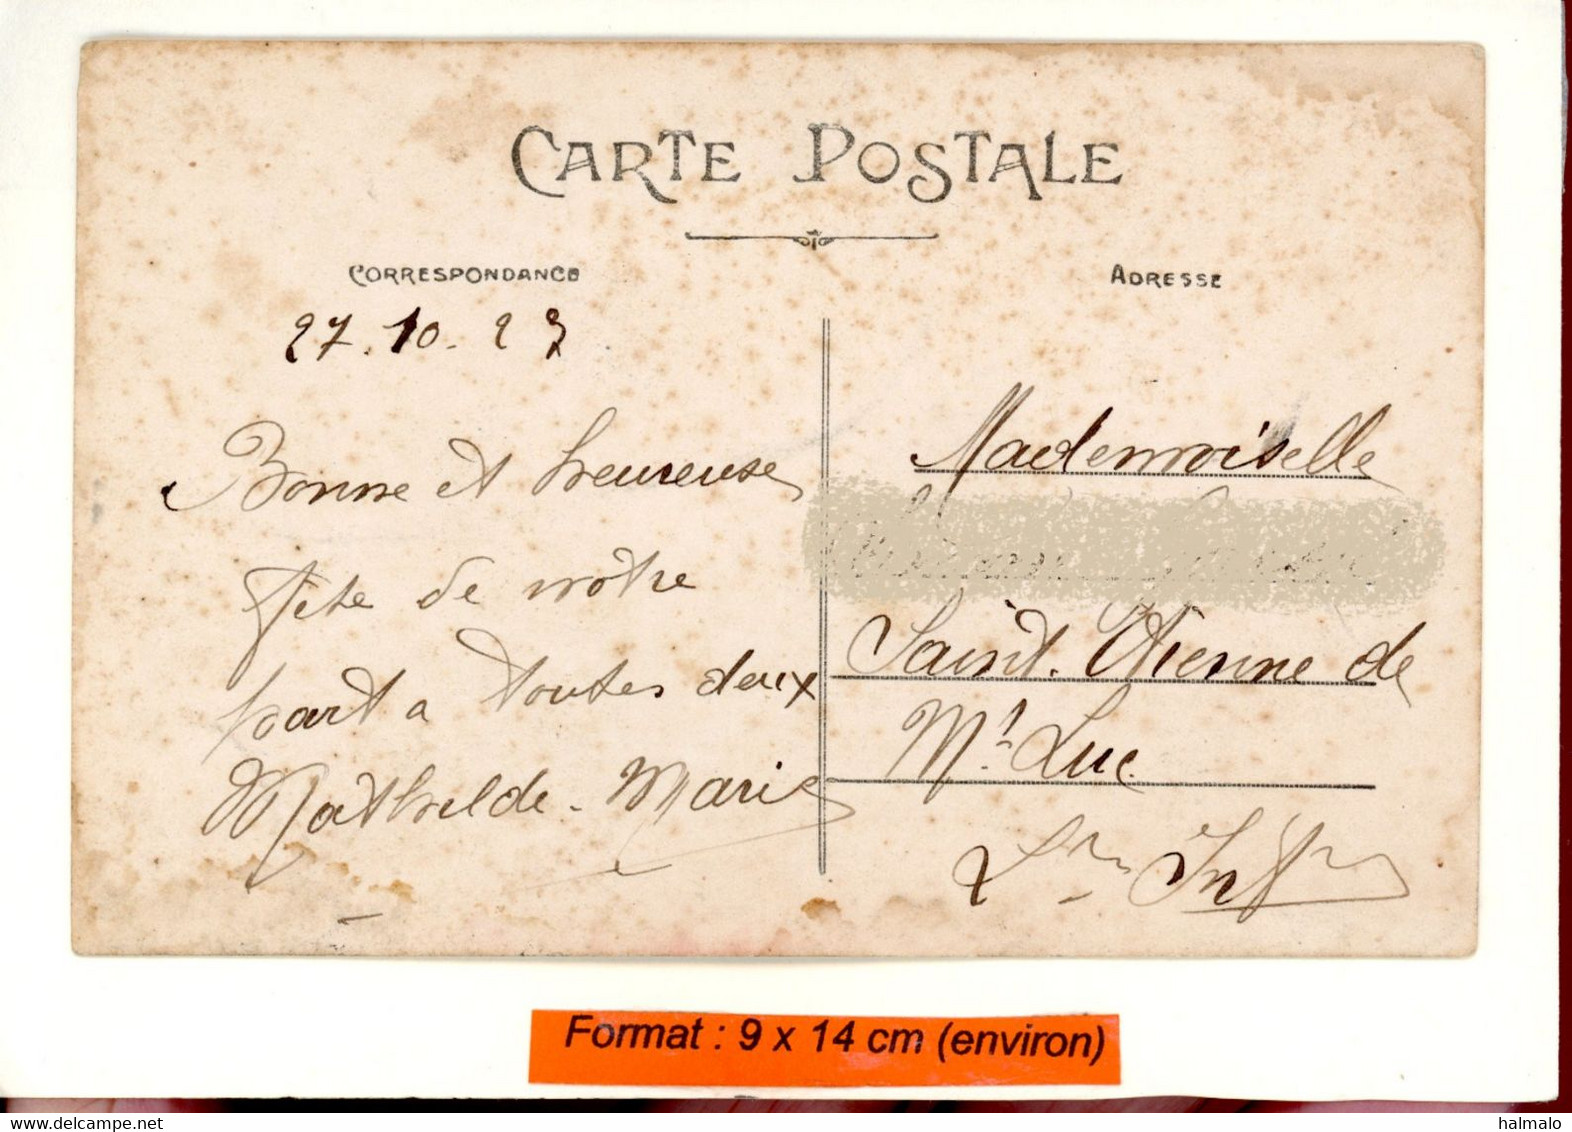 CARTE POSTALE
CORRESPONDANCE
27.10.23
Bonne et heureuse
fête de notre
part a toutes deux
Mathilde - Marie
ADRESSE
Mademoiselle
Saint. Etienne de
Mt Luc
Lre Infre
Format : 9 x 14 cm (environ)
delcampe.net
halmalo